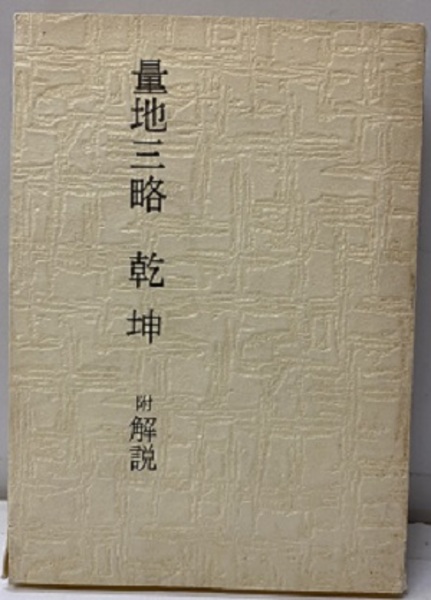 量地三略 乾坤 附解説